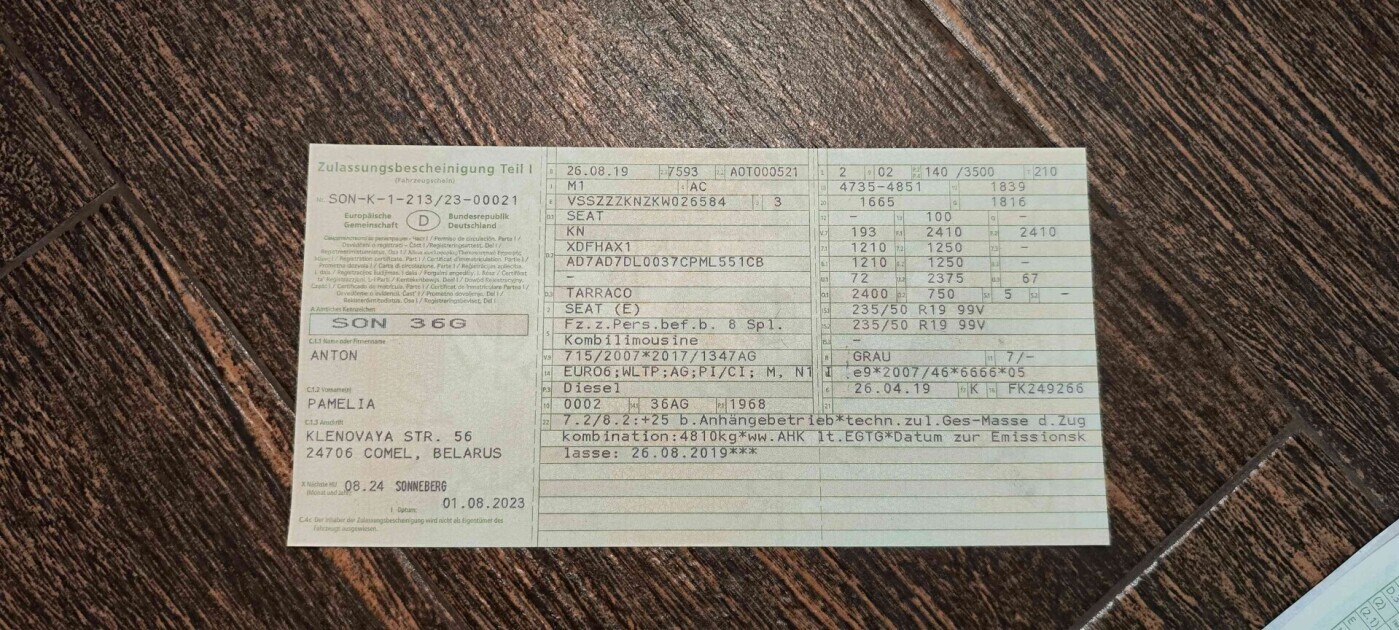 Zulassungsbescheinigung Teil I
(Fahrzeugschein)
Nr. SON-K-1-213/23-00021
Europäische Gemeinschaft
D
Bundesrepublik Deutschland
SON 36G
C.1.1 Name oder Firmenname
ANTON
C.1.2 Vorname(n)
PAMELIA
C.1.3 Anschrift
KLENOVAYA STR. 56
24706 COMEL, BELARUS
Nächste HU 08.24 SONNEBERG
(Monat und Jahr)
I Datum: 01.08.2023
C.4c Der Inhaber der Zulassungsbescheinigung wird nicht als Eigentümer des
Fahrzeugs ausgewiesen.
26.08.19 7593 AOT000521
M1 AC
VSSZZZKNZKW026584 3
SEAT
KN
XDFHAX1
AD7AD7DL0037CPML551CB
-
TARRACO
SEAT (E)
Fz.z.Pers.bef.b. 8 Spl.
Kombilimousine
715/2007*2017/1347AG
EURO6;WLTP;AG;PI/CI; M, N1
Diesel
0002 36AG 1968
2 02 140 /3500 210
4735-4851 1839
1665 1816
- 100 -
193 2410 2410
1210 1250 -
1210 1250 -
72 2375 67
2400 750 5 -
235/50 R19 99V
235/50 R19 99V
-
GRAU 7/-
e9*2007/46*6666*05
26.04.19 K FK249266
7.2/8.2:+25 b.Anhängebetrieb*techn.zul.Ges-Masse d.Zug
kombination:4810kg*ww.AHK lt.EGTG*Datum zur Emissionsk
lasse: 26.08.2019***